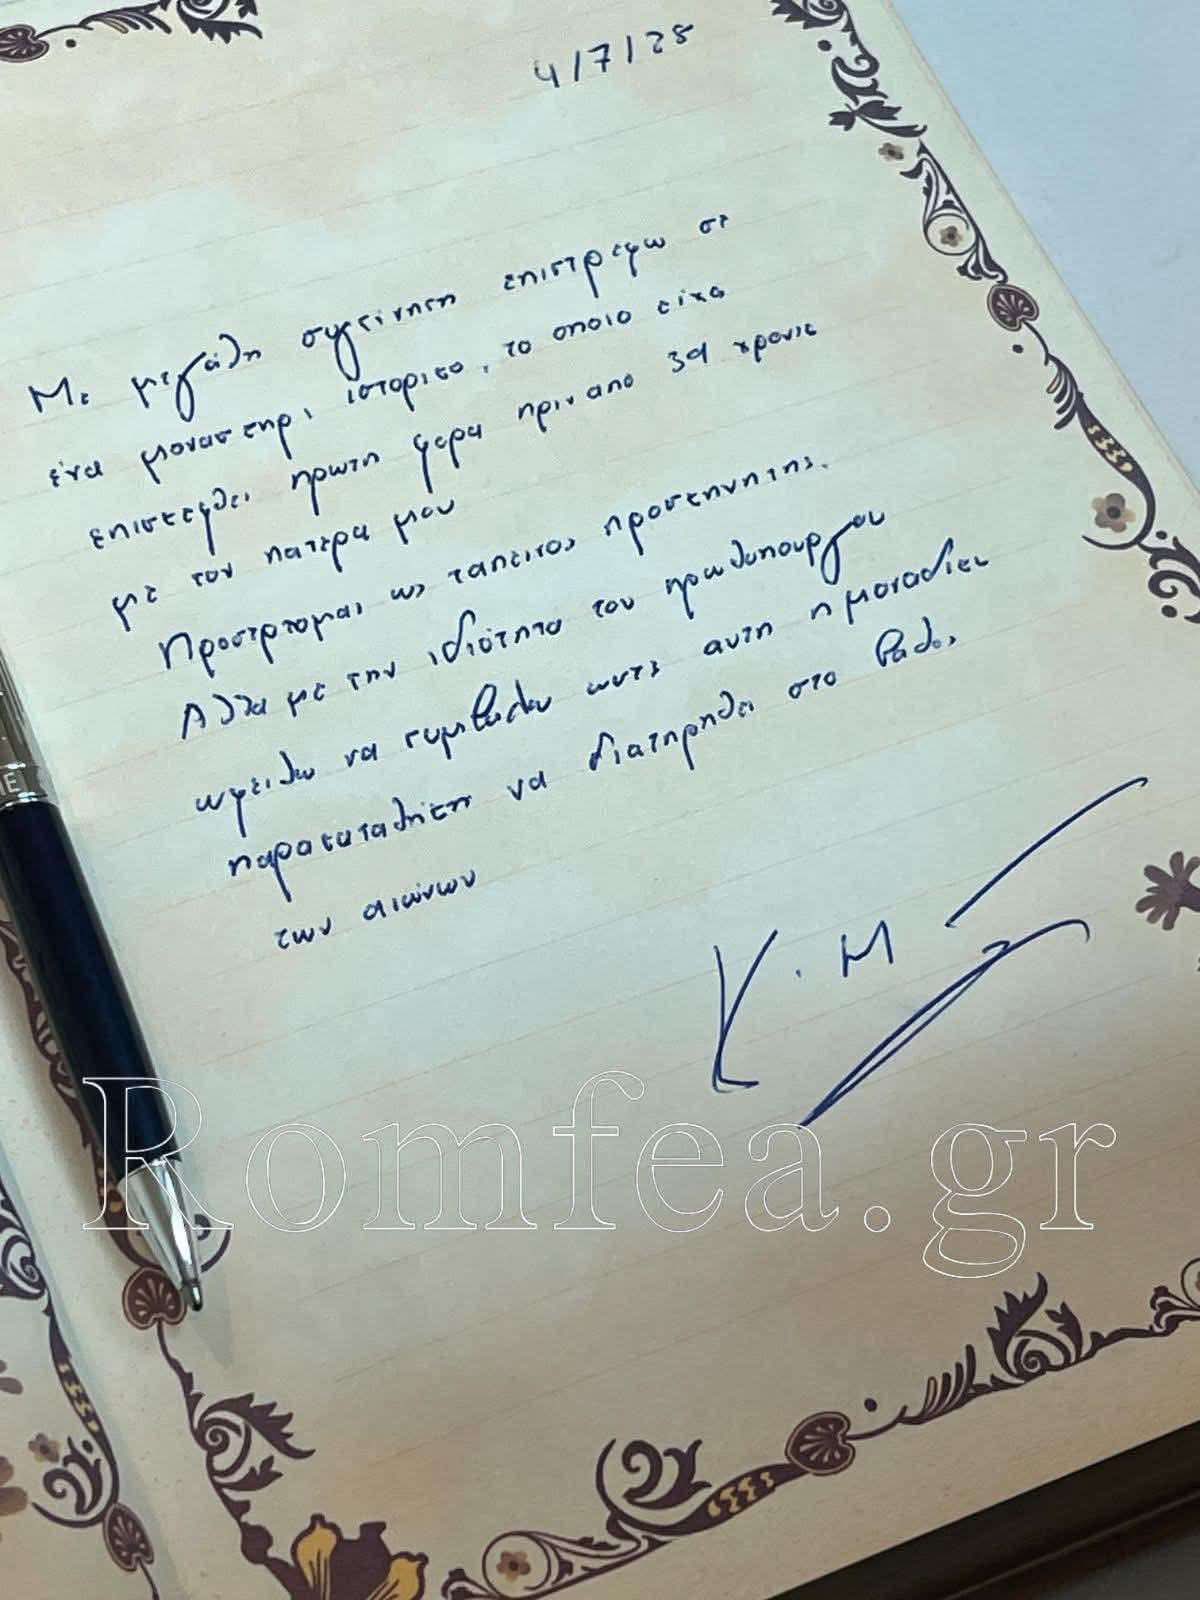 4/7/25
Με μεγάλη συγκίνηση επιστρεφω σε
ένα μοναστηρι ιστορικο, το οποιο ειχα
επισκεφθει πρωτη φορα πριν απο 39 χρονια
με τον πατερα μου
Προσερχομαι ως ταπεινος προσκυνητης.
Αλλα με την ιδιότητα του πρωθυπουργου
οφειλω να συμβαλω ωστε αυτη η μοναδικη
παρακαταθήκη να διατηρηθει στο βαθος
των αιώνων
Κ. Μ
Romfea.gr